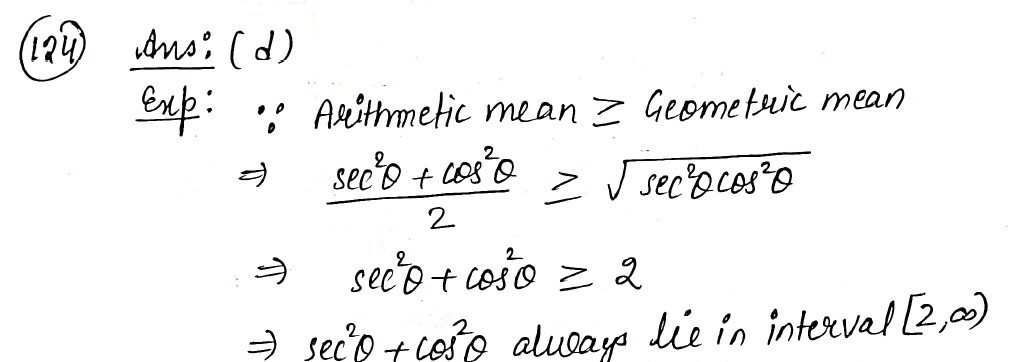 (124) Ans: (d)
Exp: ∵ Arithmetic mean ≥ Geometric mean
⇒ (sec²θ + cos²θ)/2 ≥ √(sec²θcos²θ)
⇒ sec²θ + cos²θ ≥ 2
⇒ sec²θ + cos²θ always lie in interval [2,∞)